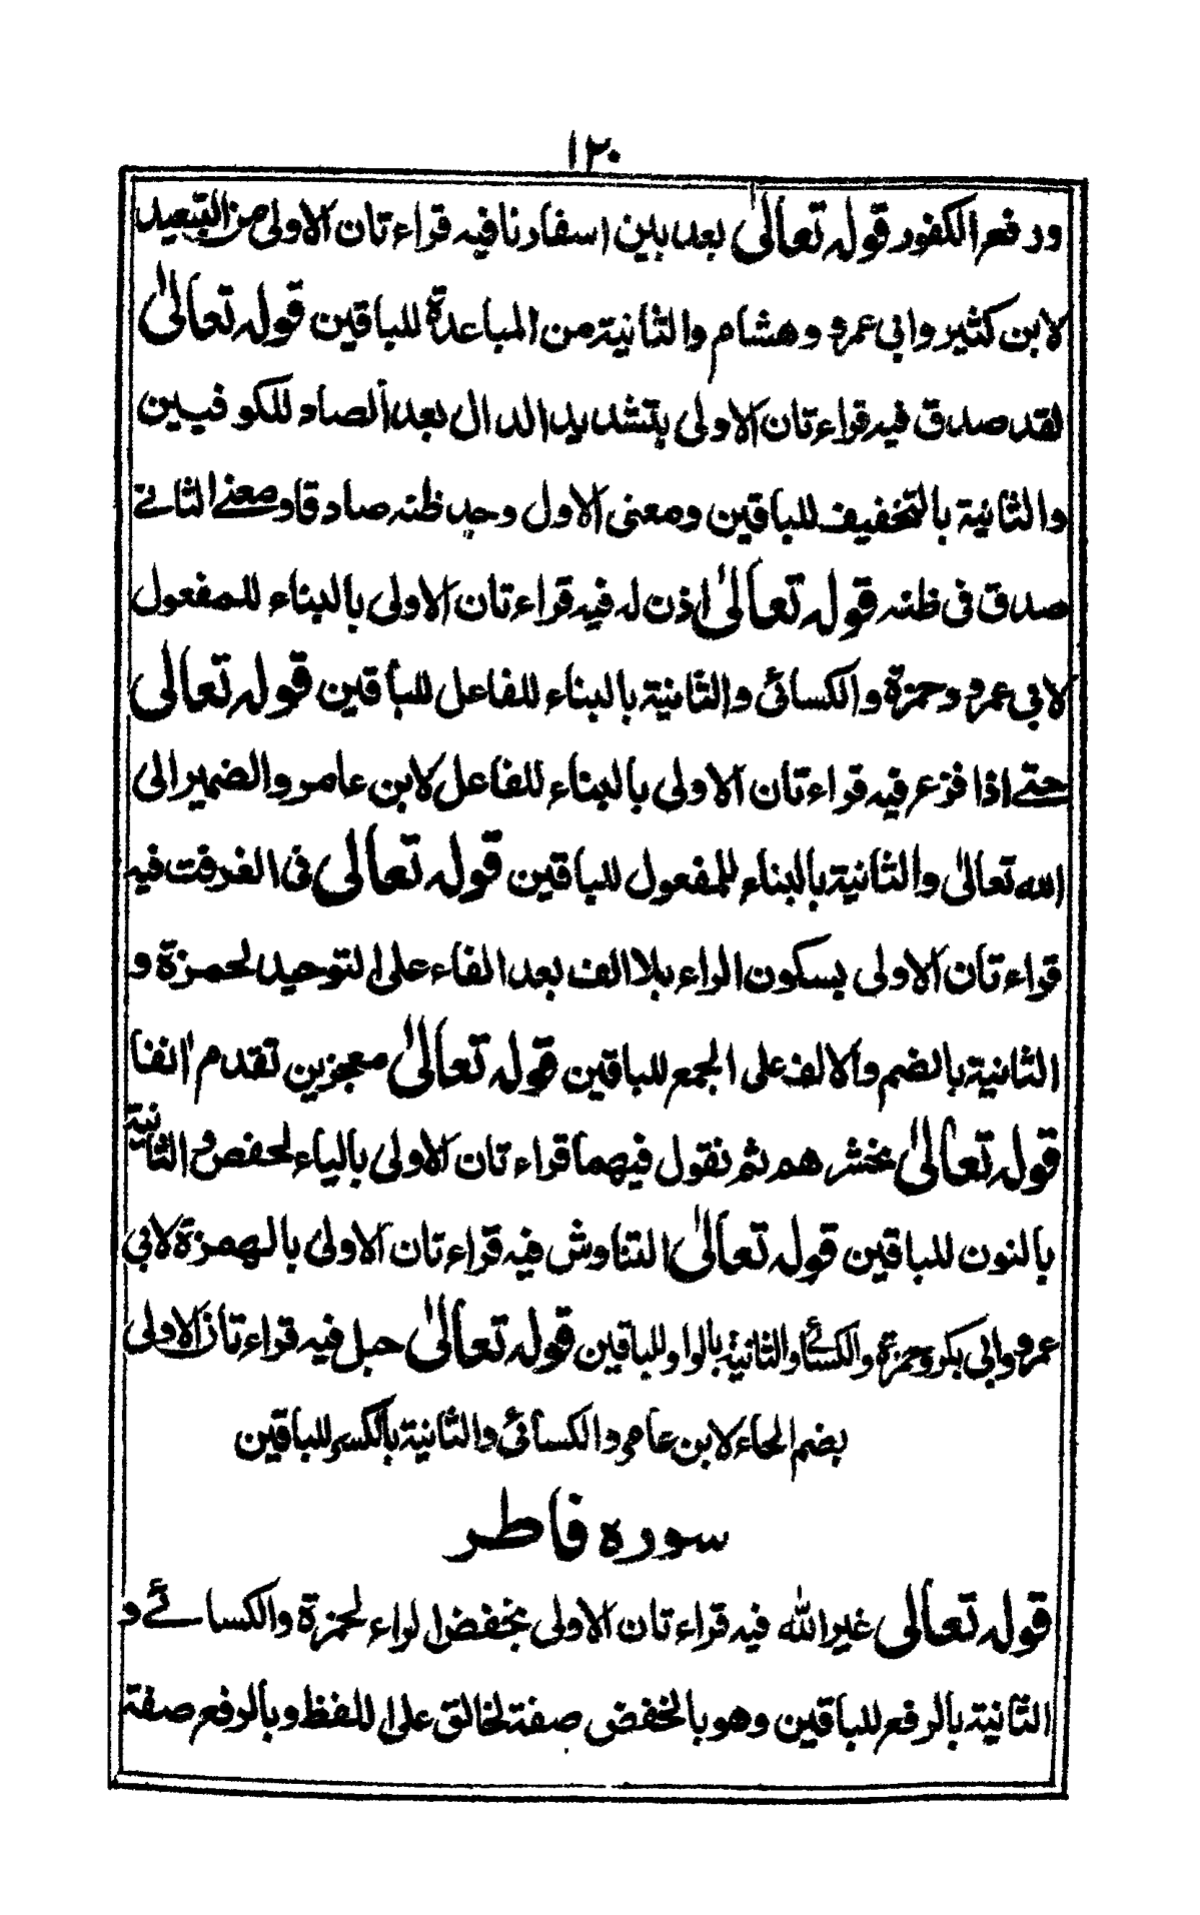 ١٣٠
ورفع الكفور قوله تعالىٰ بعد بين اسفارنا فيه قراءتان الاولى من التبعيد
لابن كثير وابى عمرو وهشام والثانية من المباعدة للباقين قوله تعالىٰ
لقد صدق فيه قراءتان الاولى بتشديد الدال بعد الصاد للكوفيين
والثانية بالتخفيف للباقين ومعنى الاول وجد ظنه صادقا ومعنے الثانے
صدق فى ظنه قوله تعالىٰ اذن له فيه قراءتان الاولى بالبناء للمفعول
لابى عمرو وحمزة والكسائى والثانية بالبناء للفاعل للباقين قوله تعالى
حتے اذا فزع فيه قراءتان الاولى بالبناء للفاعل لابن عامر والضمير الى
الله تعالىٰ والثانية بالبناء للمفعول للباقين قوله تعالى فى الغرفت فيه
قراءتان الاولى بسكون الراء بلا الف بعد الفاء على التوحيد لحمزة و
الثانية بالضم والالف على الجمع للباقين قوله تعالىٰ معجزين تقدم انفا
قوله تعالىٰ نحشرهم ثم نقول فيهما قراءتان الاولى بالياء لحفص والثانية
بالنون للباقين قوله تعالىٰ التناوش فيه قراءتان الاولى بالهمزة لابى
عمرو وابى بكر وحمزة والكسائے والثانية بالواو للباقين قوله تعالىٰ حبل فيه قراءتان الاولى
بضم الحاء لابن عامر والكسائى والثانية بالكسر للباقين
سوره فاطر
قوله تعالى غير الله فيه قراءتان الاولى بخفض الراء لحمزة والكسائے و
الثانية بالرفع للباقين وهو بالخفض صفة لخالق على اللفظ وبالرفع صفة